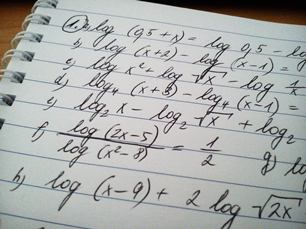 1. a) log (0,5 + x) = log 0,5 - log
b) log (x+2) - log (x-1) =
c) log x² + log √x - log 1/x
d) log₄ (x+3) - log₄ (x-1) =
e) log₂ x - log₂ √x + log₂
f) log (2x-5) / log (x²-8) = 1/2 g) lo
h) log (x-9) + 2 log √2x